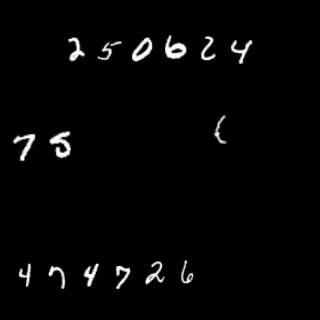 250624
75 (
474726